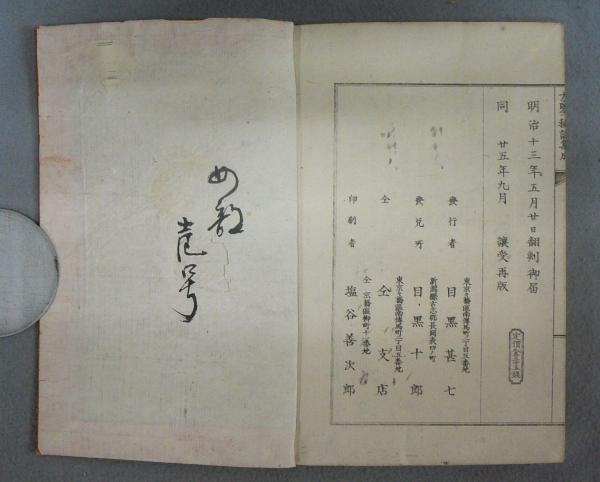 明治十三年五月廿日翻刻御届
同 廿五年九月 讓受再版
定價金三十五錢
東京京橋區南傳馬町二丁目五番地
發行者 目黒甚七
新潟縣古志郡長岡表四ノ町
發兌所 目黒十郎
東京京橋區南傳馬町二丁目五番地
仝 仝支店
仝 京橋區柳町十一番地
印刷者 塩谷善次郎
壱号